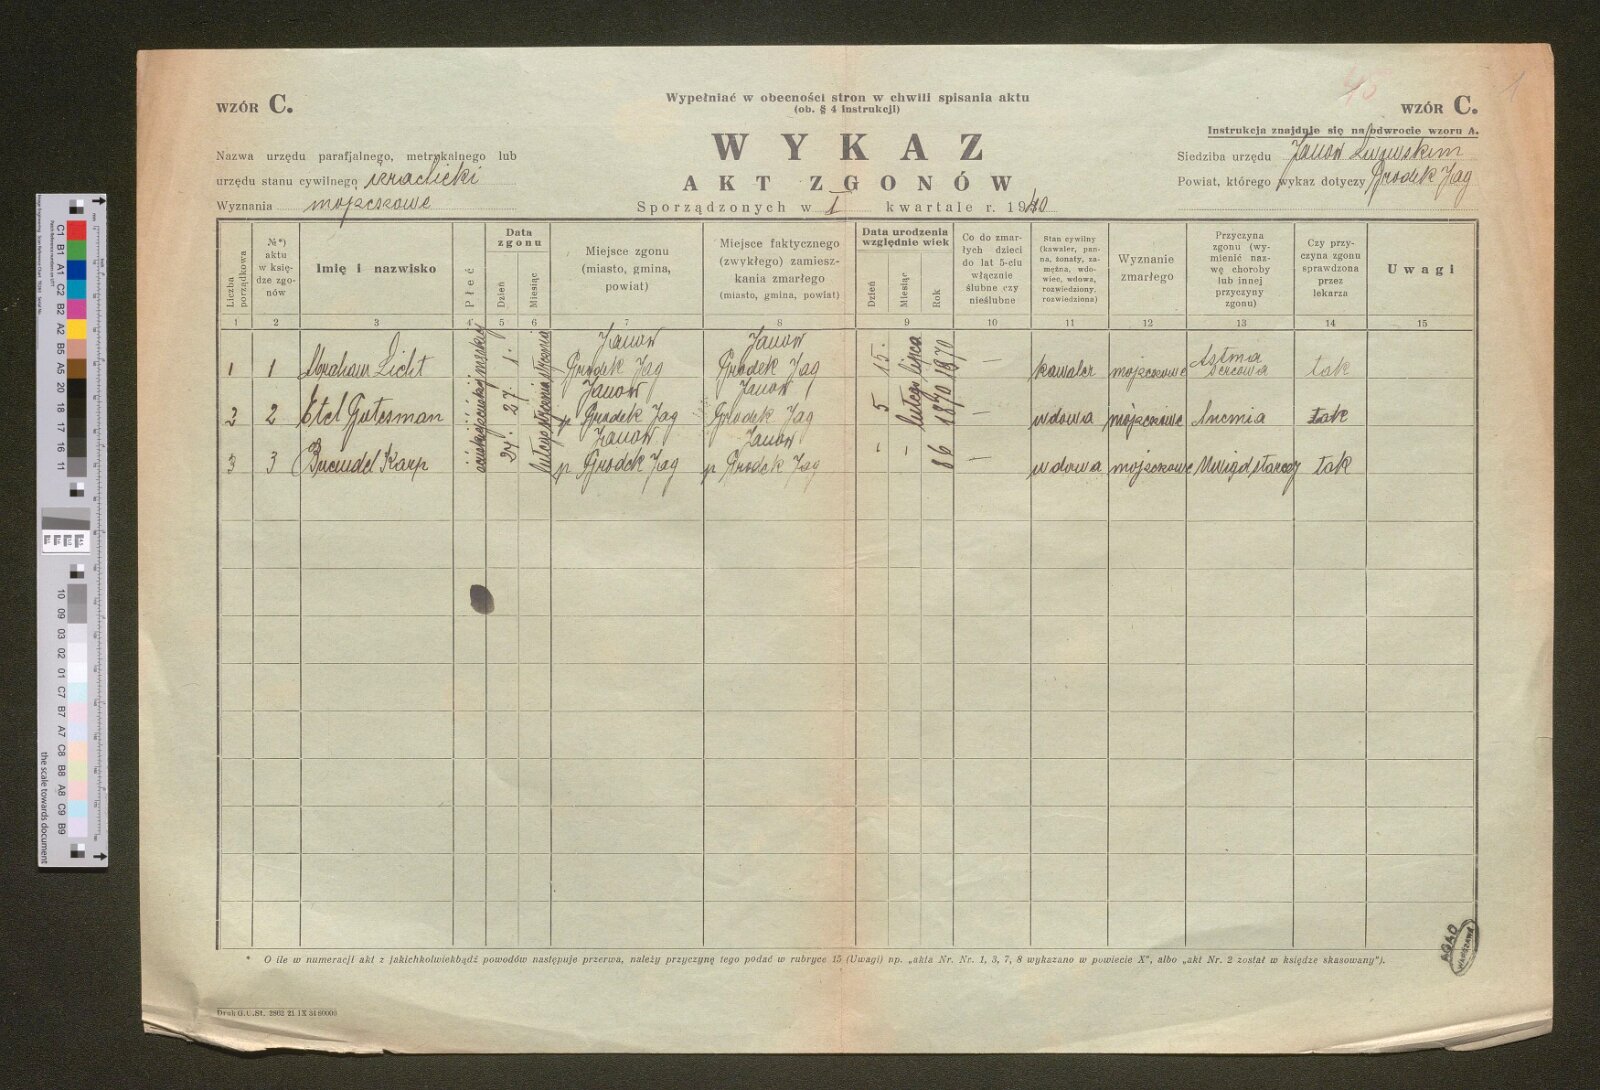 WZÓR C.
Wypełniać w obecności stron w chwili spisania aktu
(ob. § 4 instrukcji)
WZÓR C.
Instrukcja znajduje się na odwrocie wzoru A.
WYKAZ
AKT ZGONÓW
Sporządzonych w I kwartale r. 1940
Nazwa urzędu parafjalnego, metrykalnego lub
urzędu stanu cywilnego izraelicki
Wyznania mojżeszowe
Siedziba urzędu Janow Lwowskim
Powiat, którego wykaz dotyczy Grodek Jag
Liczba porządkowa
№*) aktu w księdze zgonów
Imię i nazwisko
Płeć
Data zgonu
Dzień
Miesiąc
Miejsce zgonu (miasto, gmina, powiat)
Miejsce faktycznego (zwykłego) zamieszkania zmarłego (miasto, gmina, powiat)
Data urodzenia względnie wiek
Dzień
Miesiąc
Rok
Co do zmarłych dzieci do lat 5-ciu włącznie ślubne czy nieślubne
Stan cywilny (kawaler, panna, żonaty, zamężna, wdowiec, wdowa, rozwiedziony, rozwiedziona)
Wyznanie zmarłego
Przyczyna zgonu (wymienić nazwę choroby lub innej przyczyny zgonu)
Czy przyczyna zgonu sprawdzona przez lekarza
Uwagi
1 2 3 4 5 6 7 8 9 10 11 12 13 14 15
1 1 Abraham Licht męskiej 1. stycznia Janow Grodek Jag Janow Grodek Jag 15. lipca 1870 — kawaler mojżeszowe Astma sercowa tak
2 2 Etel Gutesman żeńskiej 27. stycznia Janow p Grodek Jag Janow Grodek Jag 5 lutego 1870 — wdowa mojżeszowe Anemia tak
3 3 Breindel Karp żeńskiej 27. lutego Janow p Grodek Jag Janow p Grodek Jag - - 86 — wdowa mojżeszowe Uwiąd starczy tak
* O ile w numeracji akt z jakichkolwiekbądź powodów następuje przerwa, należy przyczynę tego podać w rubryce 15 (Uwagi) np. „akta Nr. Nr. 1, 3, 7, 8 wykazano w powiecie X”, albo „akt Nr. 2 został w księdze skasowany”).
Druk G.U.St. 2862 21 IX 34 80000
AGAD
WARSZAWA
the scale towards document